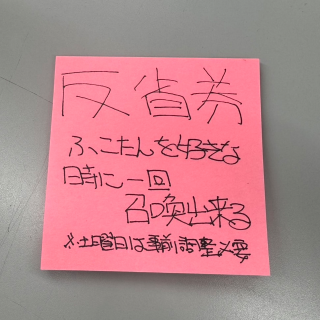 反省券
ふこたんを好きな
時に一回
召喚出来る
※土曜日は事前調整必要